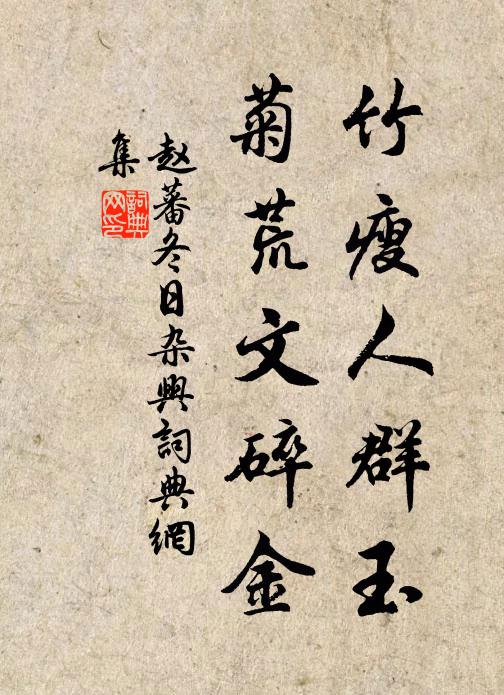 竹瘦人群玉
菊荒文碎金
赵蕃冬日杂興詞典網
集
詞典
网印